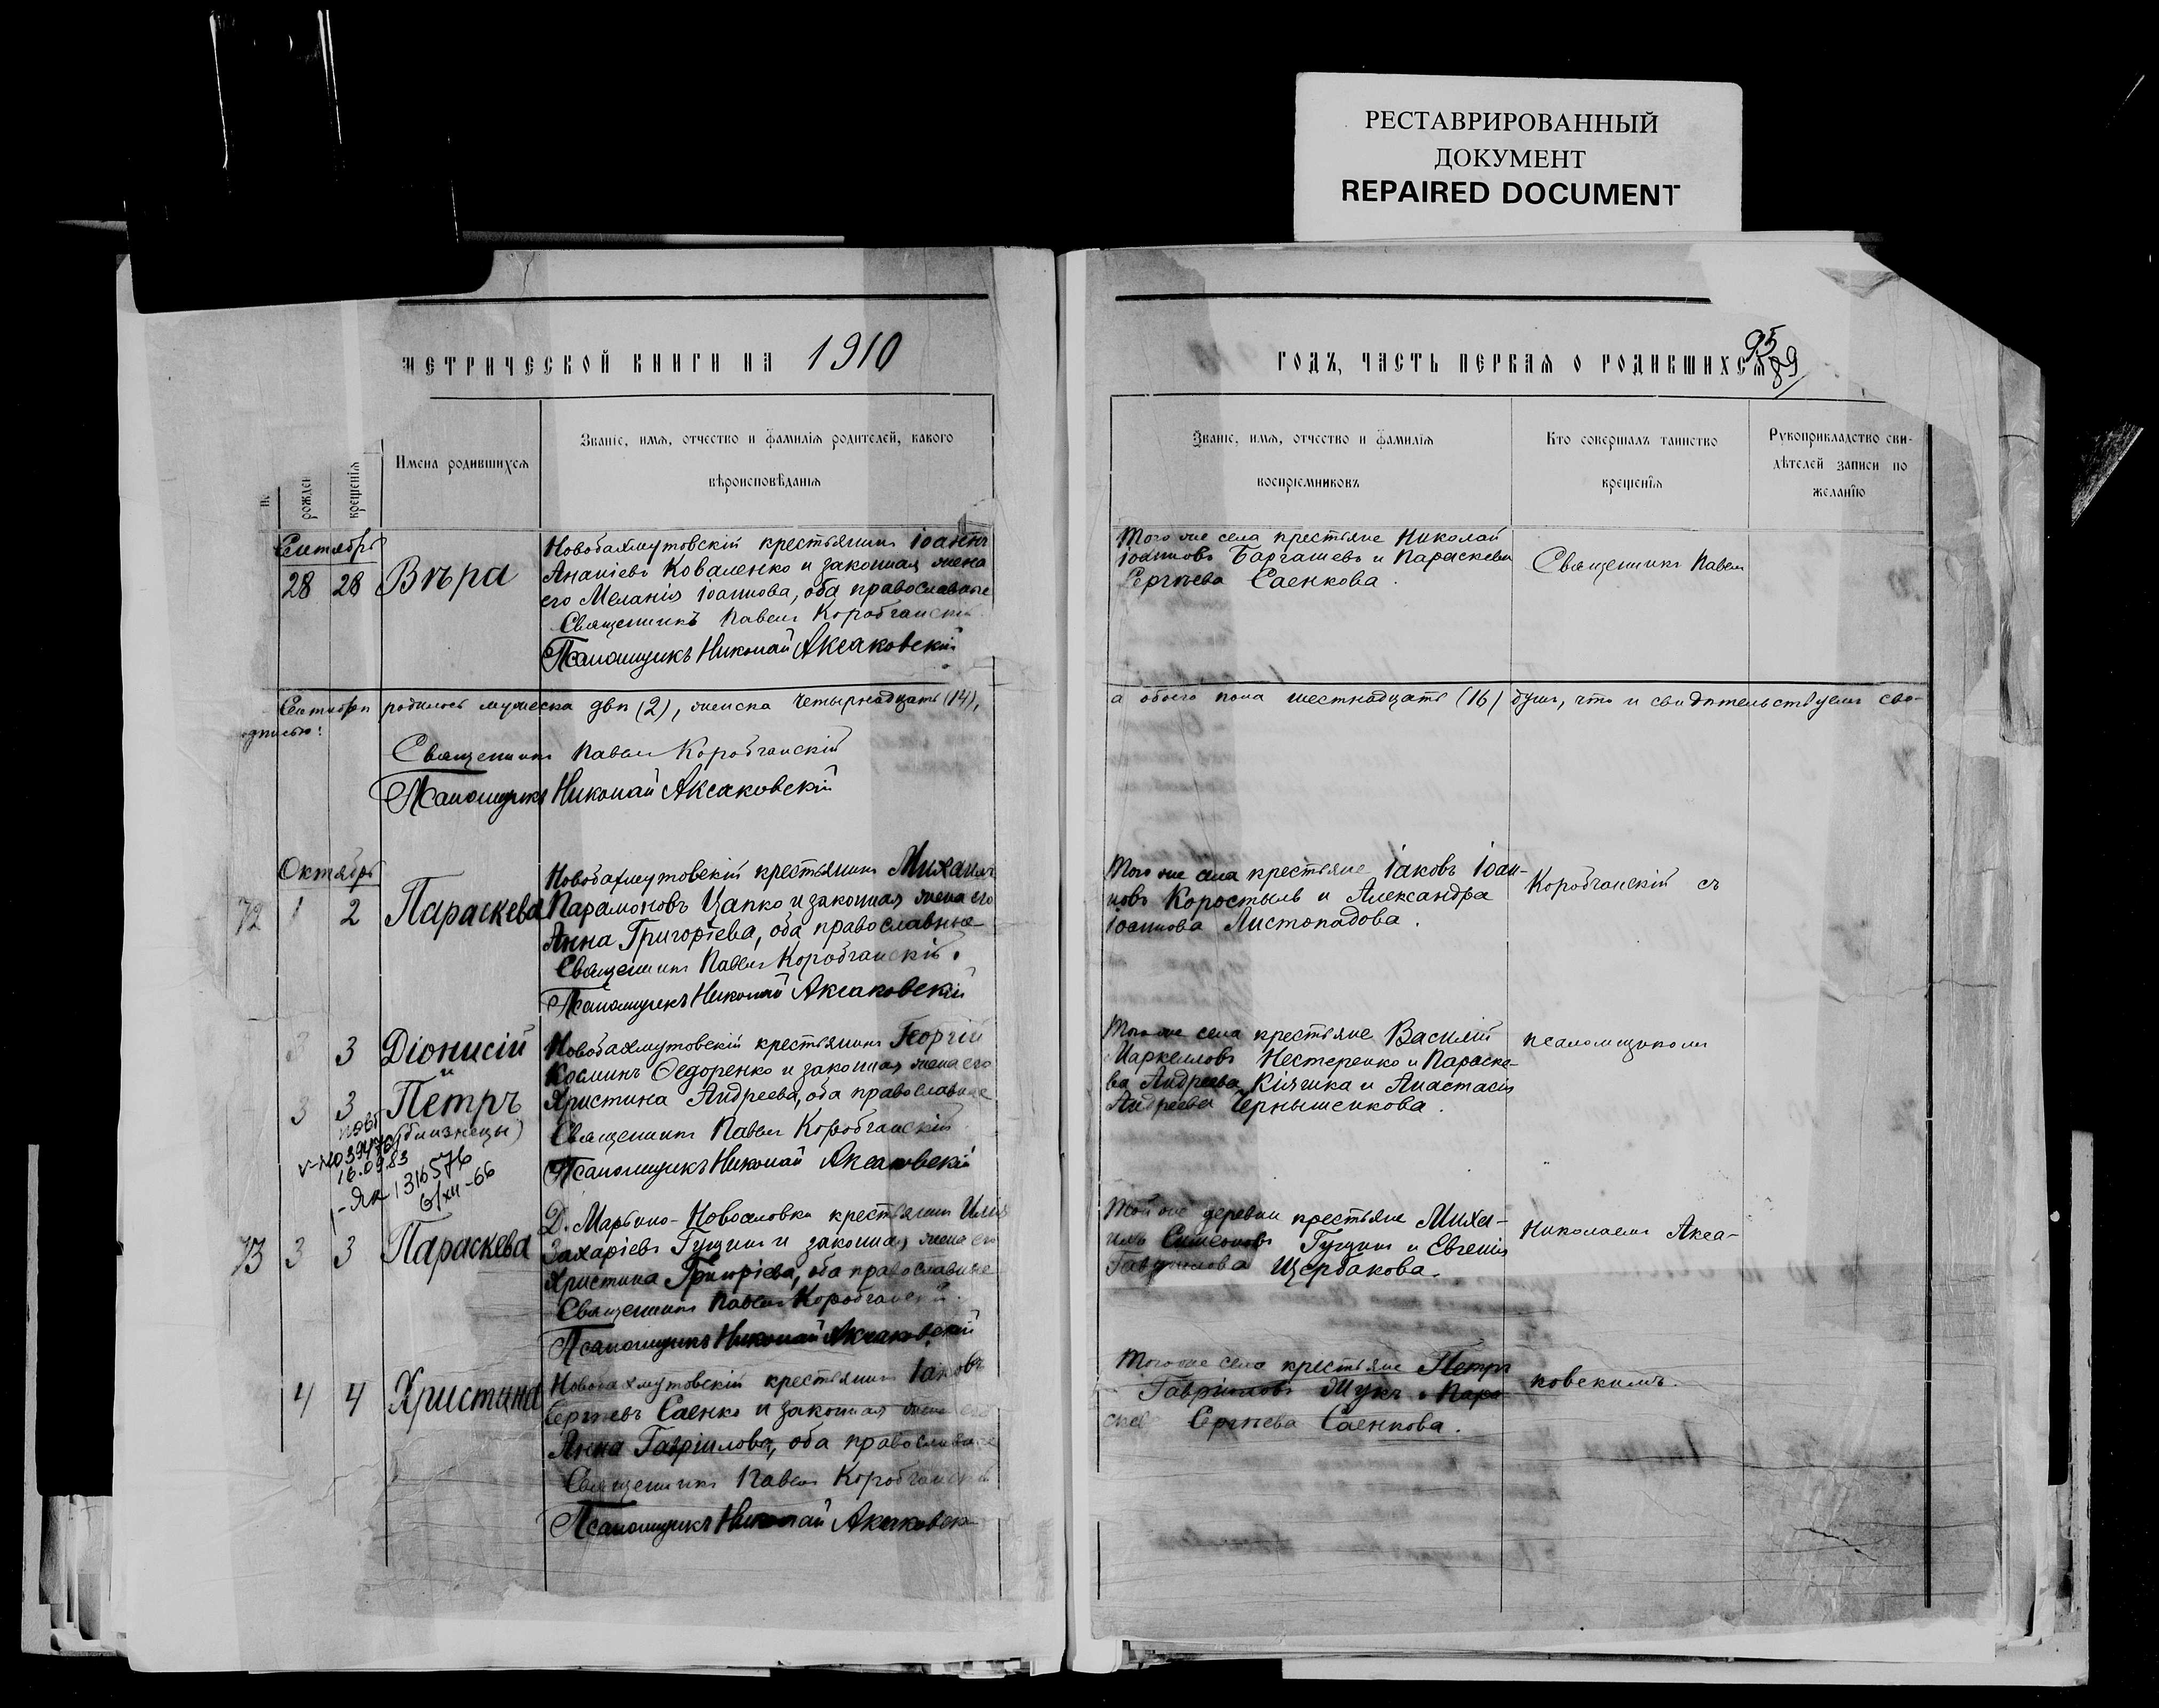 РЕСТАВРИРОВАННЫЙ
ДОКУМЕНТ
REPAIRED DOCUMENT
МЕТРИЧЕСКОЙ КНИГИ НА 1910
рожден
крещенія
Имена родившихся
Званіе, имя, отчество и фамилія родителей, какого
вѣроисповѣданія
Сентябрь
28 28 Вѣра
Новобахмутовскій крестьянинъ Іоаннъ
Ананіевъ Коваленко и законная жена
его Меланія Іоаннова, оба православные
Священникъ Павелъ Коробчанскій
Псаломщикъ Николай Аксаковскій
Сентябрѣ родилось мужеска два (2), женска четырнадцать (14),
одписью:
Священникъ Павелъ Коробчанскій
Псаломщикъ Николай Аксаковскій
Октябрь
72 1 2 Параскева
Новобахмутовскій крестьянинъ Михаилъ
Парамоновъ Цапко и законная жена его
Анна Григоріева, оба православные
Священникъ Павелъ Коробчанскій.
Псаломщикъ Николай Аксаковскій
3 3 Діонисій
и
3 3 Петръ
(близнецы)
16.09.83
1316576
6/XII-66
Новобахмутовскій крестьянинъ Георгій
Косминъ Ѳедоренко и законная жена его
Христина Андреева, оба православные
Священникъ Павелъ Коробчанскій
Псаломщикъ Николай Аксаковскій
73 3 3 Параскева
Д. Марьино-Новоаловки крестьянинъ Илія
Захаріевъ Гущинъ и законная жена его
Христина Григоріева, оба православные
Священникъ Павелъ Коробчанскій.
Псаломщикъ Николай Аксаковскій
4 4 Христина
Новобахмутовскій крестьянинъ Іаковъ
Сергѣевъ Саенко и законная жена его
Анна Гавріилова, оба православные
Священникъ Павелъ Коробчанскій
Псаломщикъ Николай Аксаковск
ГОДЪ, ЧАСТЬ ПЕРВАЯ О РОДИВШИХСЯ
95
89
Званіе, имя, отчество и фамилія
воспріемниковъ
Кто совершалъ таинство
крещенія
Рукоприкладство сви-
дѣтелей записи по
желанію
Того же села крестьяне Николай
Іоанновъ Баргашевъ и Параскева
Сергѣева Саенкова.
Священникъ Павелъ
а обоего пола шестнадцать (16) душъ, что и свидѣтельствуемъ сво-
Того же села крестьяне Іаковъ Іоан-
новъ Коростыль и Александра
Іоаннова Листопадова.
Коробчанскій съ
Того же села крестьяне Василій
Маркелловъ Нестеренко и Параске-
ва Андреева и Анастасія
Андреева Чернышенкова.
псаломщикомъ
Той же деревни крестьяне Миха-
илъ Симеоновъ Гущинъ и Евгенія
Гаврилова Щербакова.
Николаемъ Акса-
Того же села крестьяне Петръ
Гавріиловъ Жукъ и Пара
Сергѣева Саенкова.
ковскимъ.